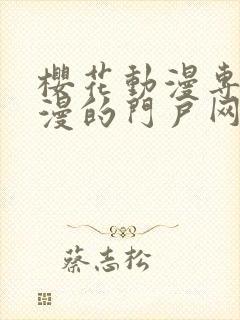 櫻花動漫專
漫的門戶网
蔡志松